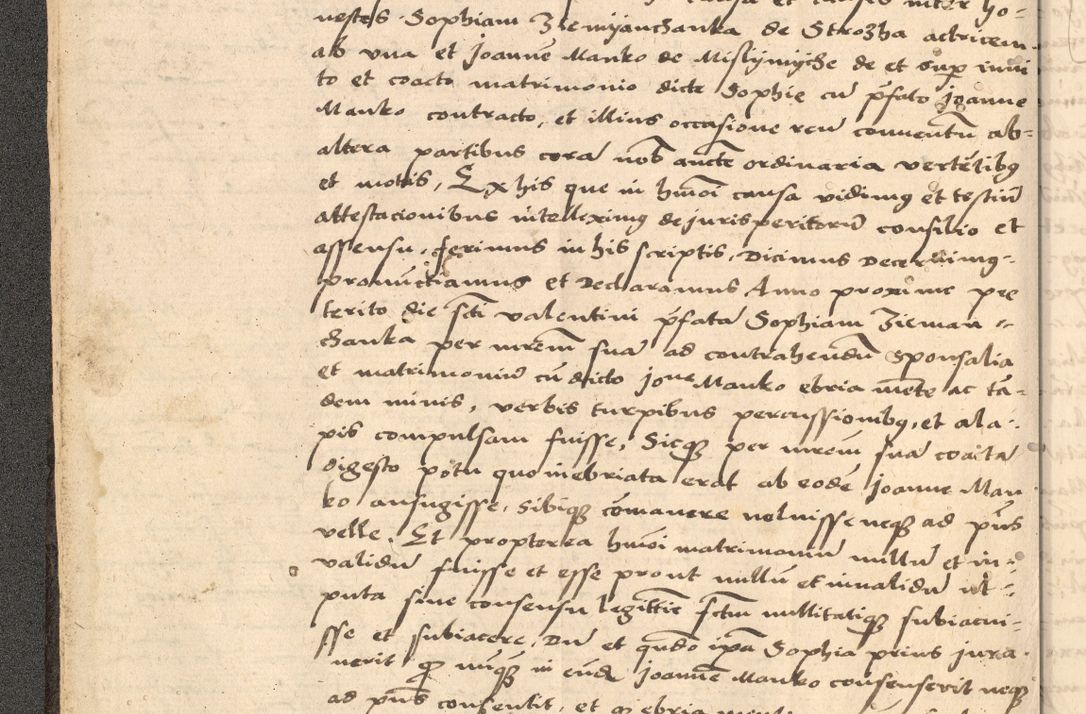 causa et causis inter ho-
nestas Sophiam Ziemyanczanka de Strozha actricem
ab vna et Joanne͂ Manko de Mislymycze de et sup invi
to et coacto matrimonio dicte Sophie cu͂ p͂fato Joanne
Manko contracto, et illius occasione reu͂ conventu͂ ab-
altera partibus cora͂ nob aucte ordinaria verte͂tibus
et motis, Ex his que in hmo͂i causa vidimus et testiu͂
attestacionibus intelleximus de jurisperitoru͂ consilio et
assensu, ferimus in his scriptis, Dicimus Decernimus-
pronu͂ctiamus et Declaramus Anno proxime pre
terito die scti valentini p͂fata͂ Sophiam Zieman=
czanka per mrem͂ sua͂ ad contrahendu͂ sponsalia
et matrimoniu͂ cu͂ dicto Joanne Manko ebria me͂te ac ta͂-
dem minis, verbis turpibus percussionibus, et ala-
pis compulsam fuisse, Sicque per mrem͂ sua͂ coacta͂
digesto potu quo inebriata erat ab eode͂ Joanne Man
ko aufugisse, sibique co͂manere noluisse neque ad pn͂s
velle. Et propterea hmo͂i matrimoniu͂ nullu͂ et in-
validu͂ fuisse et esse prout nullu͂ et invalidu͂ ut-
puta sine consensu legittie͂ fctm nullitatique subiacui-
sse et subiacere, Du͂ et qn͂do ipa͂ Sophia prius jura-
verit q nu͂que in eu͂d Joanne͂ Manko consenserit neque
ad pn͂s consentit, et q ebria